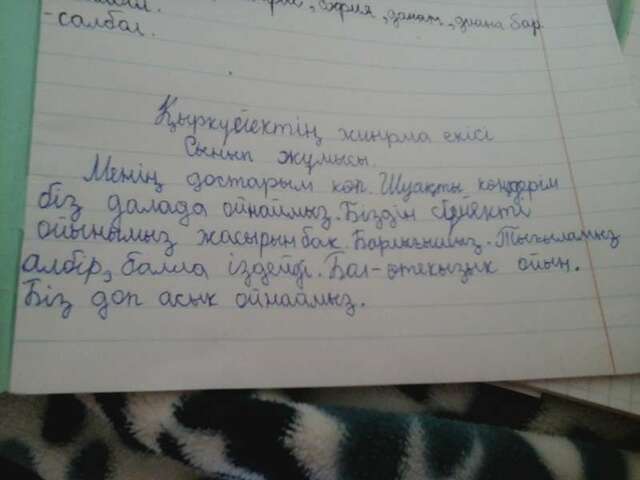 София, дамат, диана бар
-салбал.
Қыркүйектің жиырма екісі
Сынып жұмысы.
Менің достарым көп. Шуақты күндерім
біз далада ойнаймыз. Біздін сүйекті
ойынымыз жасырынбак. Барлығымыз. Тығыламыз
ал бір, балла іздейді. Бал-өтекызық ойын.
Біз доп асық ойнаймыз.